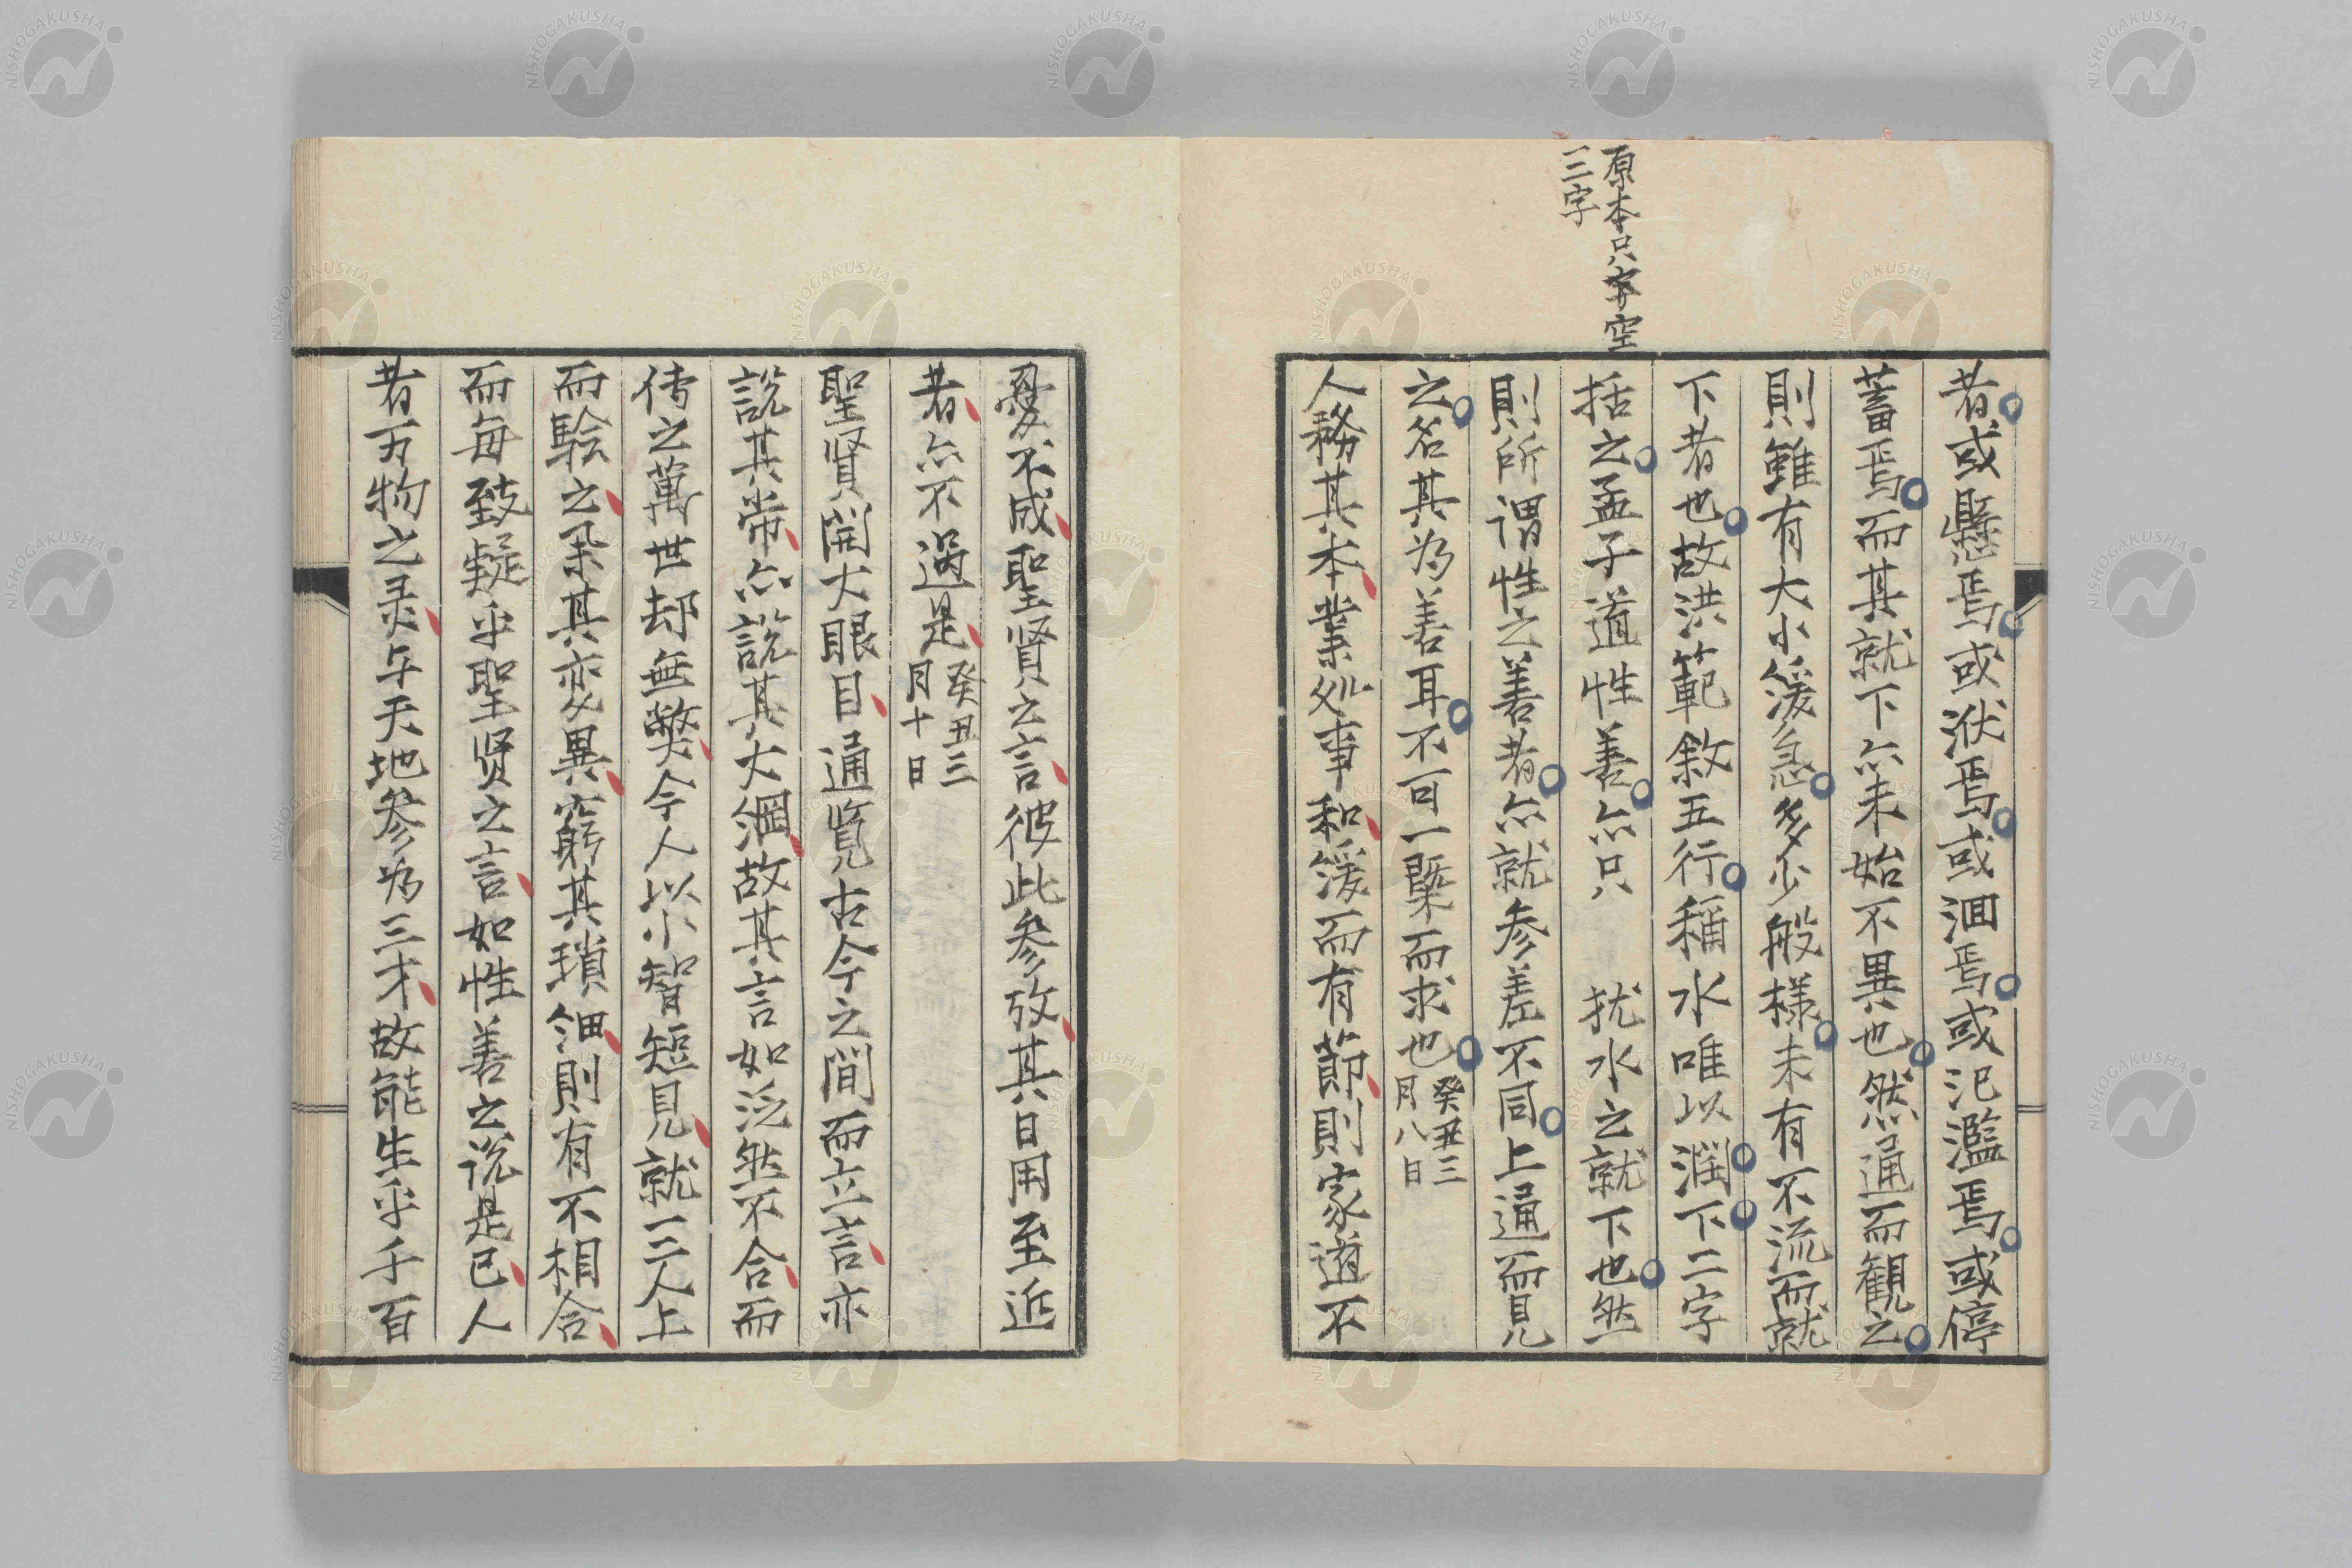 原本只字空
二三字
者或懸焉或洑焉或洄焉或氾濫焉或停
蓄焉而其就下亦未始不異也然通而観之
則雖有大小緩急多少般様未有不流而就
下者也故洪範敘五行稱水唯以潤下二字
括之孟子道性善亦只　扰水之就下也然
則所謂性之善者亦就参差不同上通而見
之名其为善耳不可一槩而求也癸丑三月八日
人務其本業処事和緩而有節則家道不
憂不成聖賢之言彼此参攷其日用至近
者亦不過是癸丑三月十日
聖賢開大眼目通覧古今之間而立言亦
説其常亦説其大綱故其言如泛然不合而
传之萬世却無獘今人以小智短見就一二人上
而験之杂其变異窮其瑣細則有不相合
而毎致疑乎聖贤之言如性善之説是已人
者万物之灵与天地参为三才故能生乎千百